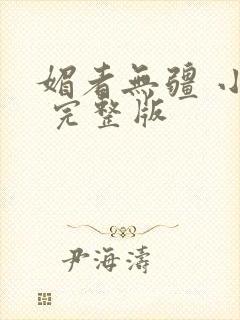 媚者無疆 小
完整版
尹海濤